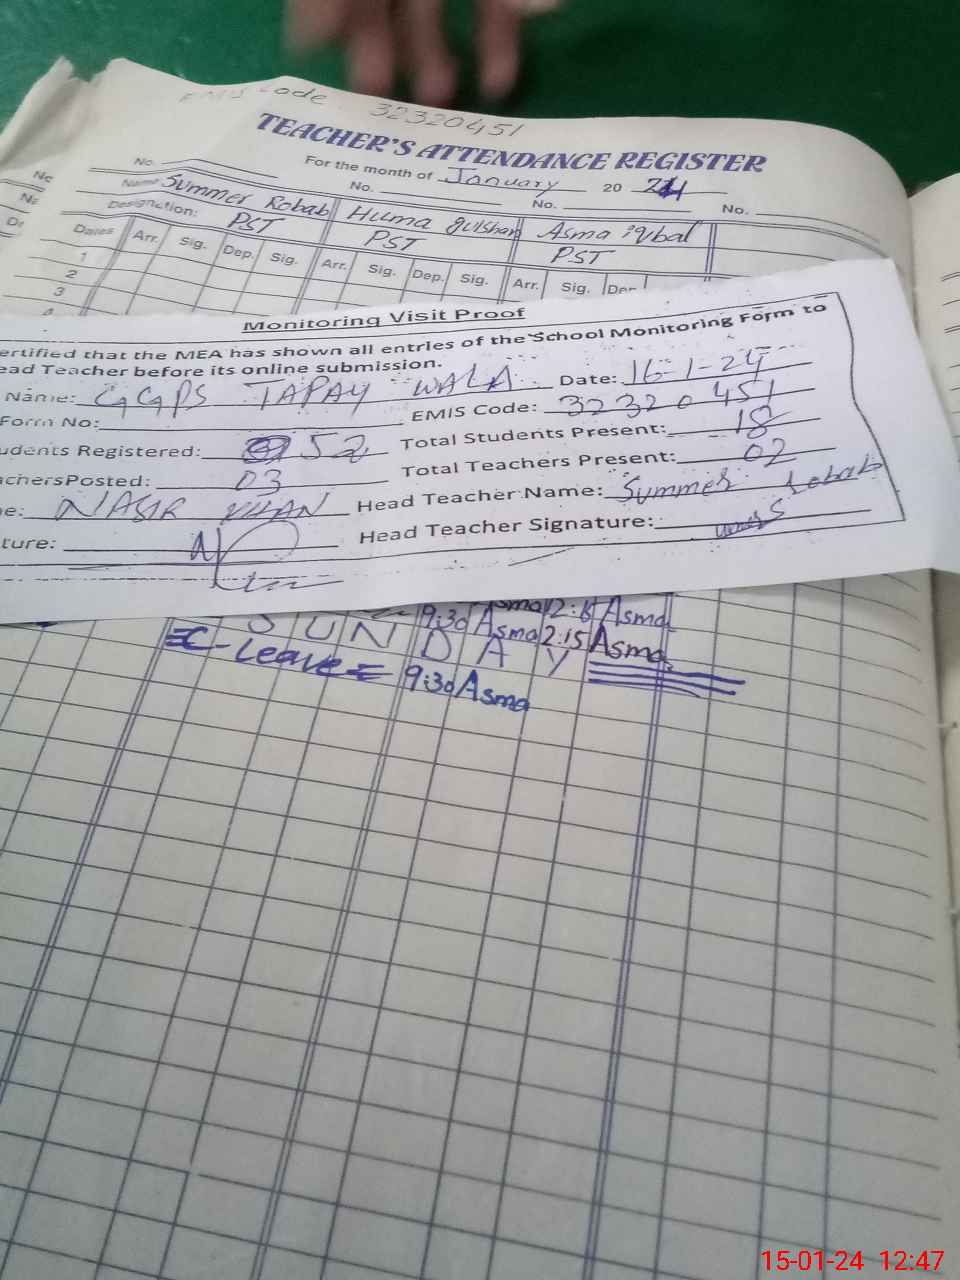 EMIS Code 32320451
TEACHER'S ATTENDANCE REGISTER
For the month of January 20 24
No. No. No. No.
Name Summer Robab Huma gulshan Asma iqbal
Designation: PST PST PST
Dates Arr. Sig. Dep. Sig. Arr. Sig. Dep. Sig. Arr. Sig. Dep.
1
2
3
Monitoring Visit Proof
ertified that the MEA has shown all entries of the School Monitoring Form to
ead Teacher before its online submission.
Name: GGPS TAPAY WALA Date: 16-1-24
Form No: EMIS Code: 32320451
udents Registered: 52 Total Students Present: 18
achersPosted: 03 Total Teachers Present: 02
e: NASIR KHAN Head Teacher Name: Summer Robab
ture: Head Teacher Signature:
Asma 12:15 Asma
9:30 Asma 2:15 Asma
SUNDAY
=C-Leave= 9:30 Asma
15-01-24 12:47